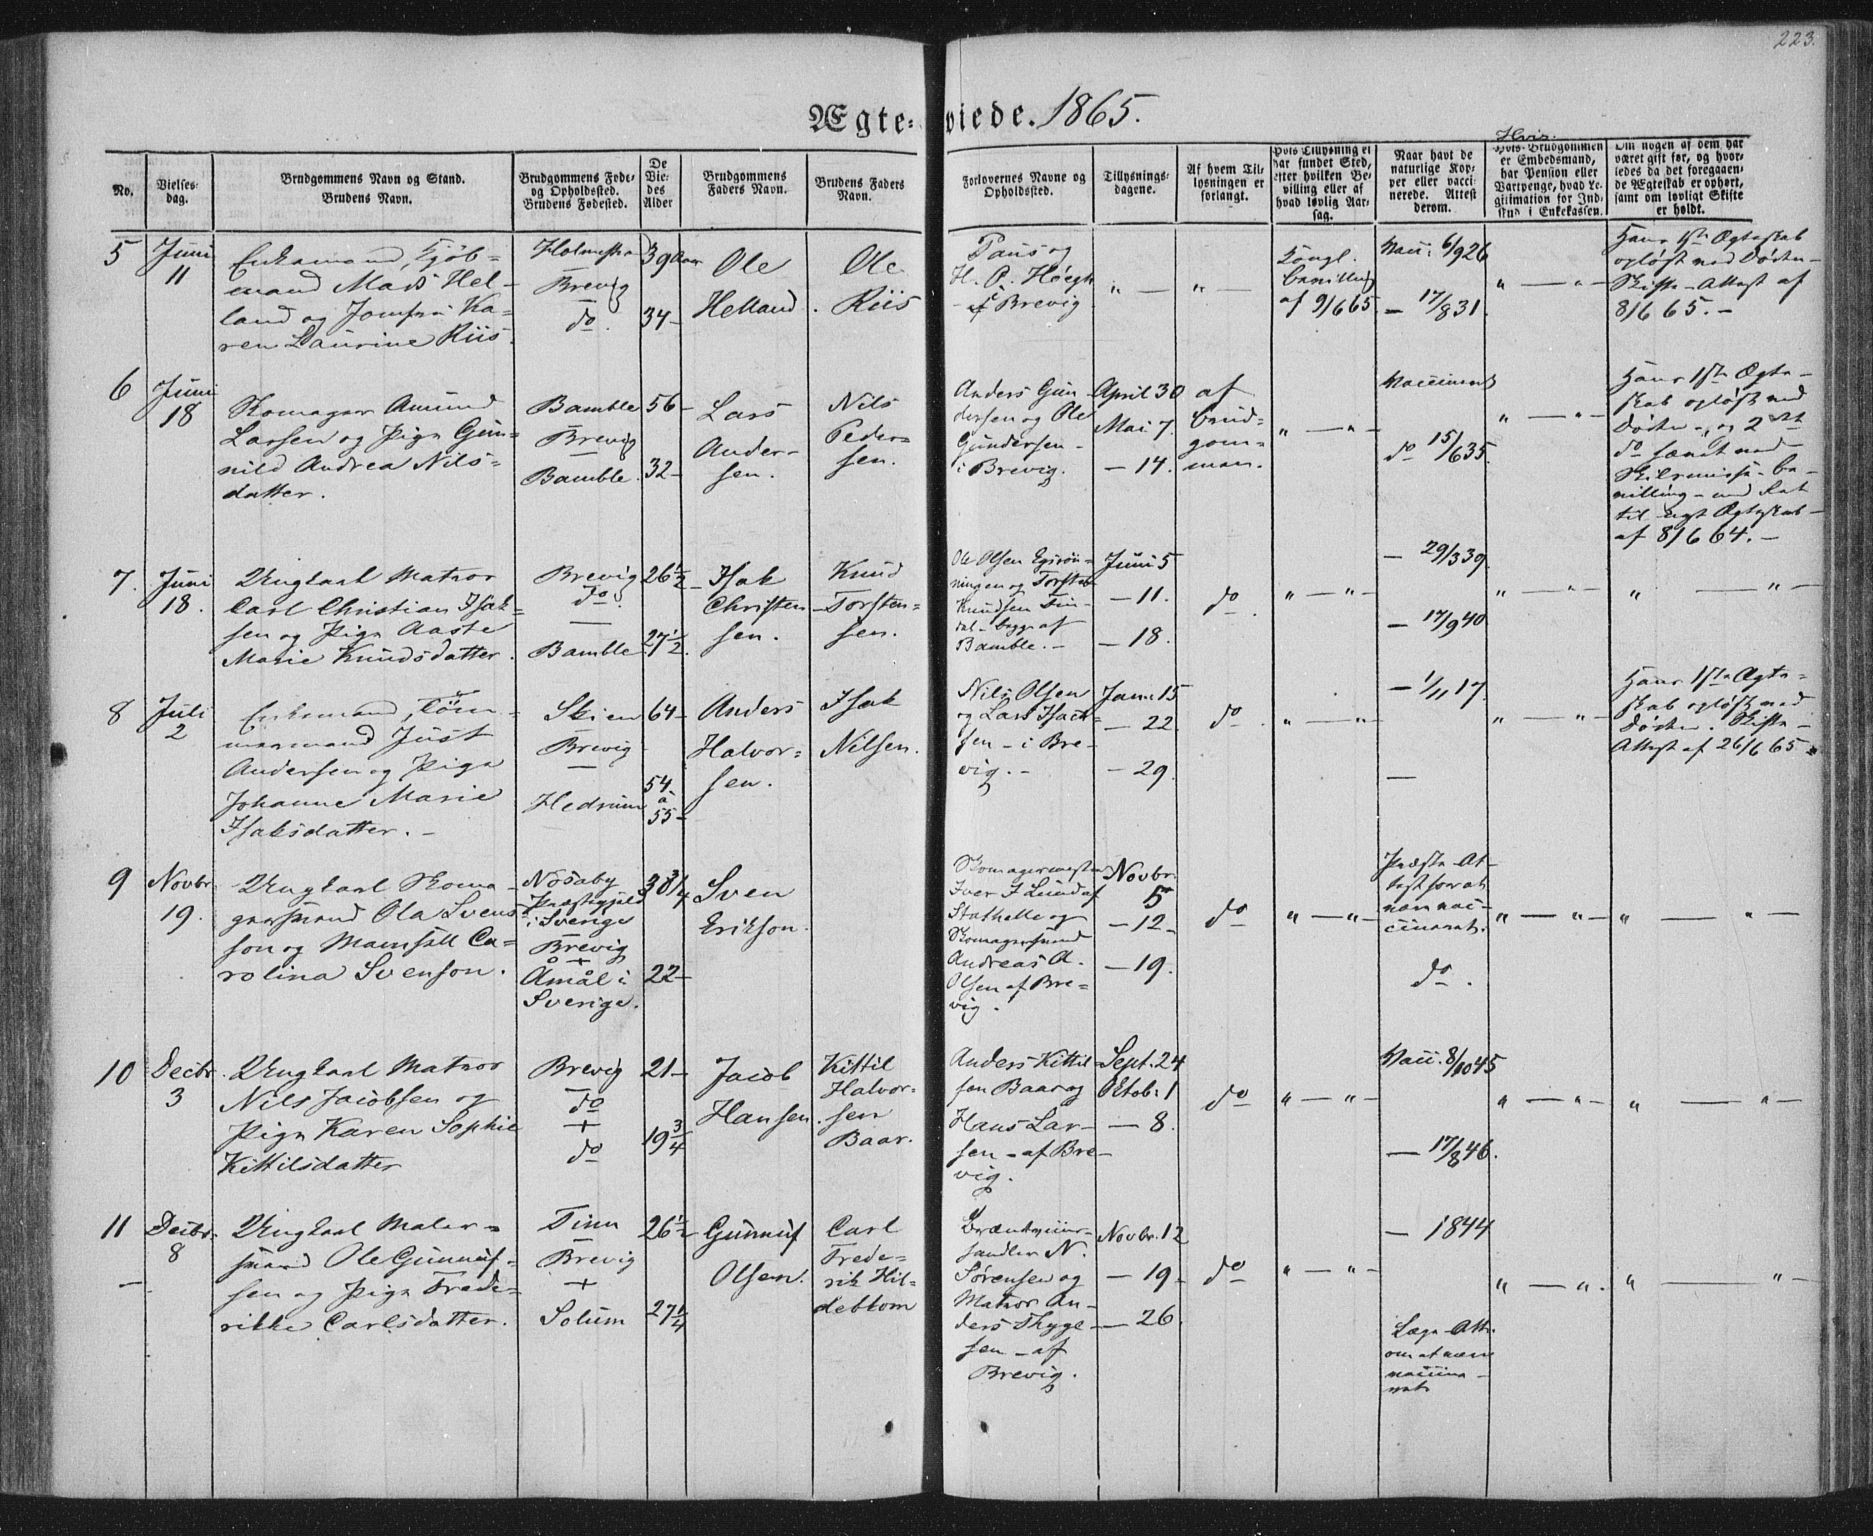 223.
Ægte-viede. 1865.
No.
Vielses-
dag.
Brudgommens Navn og Stand.
Brudens Navn.
Brudgommens Føde-
og Opholdssted.
Brudens Fødested.
De
Vie-
des
Alder
Brudgommens
Faders Navn.
Brudens Faders
Navn.
Forlovernes Navne og
Opholdssted.
Tillysnings-
dagene.
Af hvem Til-
lysningen er
forlangt.
Hvis Tillysning ei
har fundet Sted,
efter hvilken Be-
villing eller af
hvad lovlig Aar-
sag.
Naar havt de
naturlige Kop-
per eller vacci-
nerede. Attest
derom.
Hvis
Hvis Brudgommen
er Embedsmand,
har Pension eller
Vartpenge, hvad Le-
gitimation for Ind-
skud i Enkekassen.
Om nogen af dem har
været gift før, og hvor-
ledes da det foregaaen-
de Ægteskab er ophørt,
samt om lovligt Skifte
er holdt.
5
Juni
11
Enkemand, Kjøb-
mand Mads Hel-
land og Jomfru Ka-
ren Laurine Riis.
Holmestr
Brevig
do.
39 Aar
34-
Ole
Helland.
Ole
Riis
Paus og
H. P. Høegh
af Brevig
" — "
" —
Kongl.
Bevilling
af 9/6 65
Vacc: 6/9 26
— 17/8 31.
" — "
Hans 1ste Ægteskab
opløst ved Døden-
Skifte-Attest af
8/6 65. –
6
Juni
18
Skomager Amund
Larsen og Pige Gun-
nild Andrea Nils-
datter.
Bamble
Brevig
—
Bamble.
56-
32-
Lars
Ander-
sen.
Nils
Peder-
sen.
Anders Gun
dersen og Ole
Gundersen -
i Brevig.
April 30
Mai 7.
— 14.
af
Brud-
gom-
men.
" — "
Vaccineret
do 15/6 35.
" — "
Hans 1ste Ægte-
skab opløst ved
Døden -, og 2det
do hævet ved
Skilsmisse-be-
villing - med Ret
til nyt Ægteskab -
af 8/6 64. –
7.
Juni
18.
Ungkarl Matros
Carl Christian Isak-
sen og Pige Aaste
Marie Knudsdatter.
Brevig
do.
—
Bamble
26 1/2
27 1/2.
Isak
Christen
sen.
Knud
Torsten-
sen.
Ole Olsen
ningen og Torsten
Knudsen
begge af
Bamble. –
Juni 5
— 11.
— 18.
do
" — "
— 29/3 39.
— 17/9 40
" — "
" — "
8
Juli
2
Enkemand, Töm-
mermand Just
Andersen og Pige
Johanne Marie
Isaksdatter. –
Skien
Brevig
—
Hedrum
64-
54
a
55-
Anders
Halvor-
sen.
Isak
Nilsen.
Nils Olsen
og Lars Isach-
sen - i Bre-
vig. –
Janr 15
— 22.
— 29.
do
" — "
— 1/11 17.
—
" — "
Hans 1ste Ægte-
skab opløst ved
Døden. Skifte-
Attest af 26/6 65.
9
Novbr
19.
Ungkarl Skoma-
gersvend Ola Svens-
son og Mamsell Ca-
rolina Svenson.
Nosaby
Præstegjeld
i Sverige
Brevig
+
Åmål i
Sverige.
38 3/4
22-
Sven
Erikson.
Skomagermester
Iver J Lund af
Stathelle og
Skomagersvend
Andreas A.
Olsen af Bre-
vig.
Novbr:
5
— 12-
— 19.
do
" — "
Præste-At-
test for at
være vac-
cineret.
do.
" — "
" — "
10
Decbr.
3
Ungkarl Matros
Nils Jacobsen og
Pige Karen Sophie
Kittilsdatter
Brevig
do
+
do
21-
19 3/4
Jacob
Hansen.
Kittil
Halvor-
sen
Baar.
Anders Kittil-
sen Baar og
Hans Lar-
sen - af Bre-
vig.
Sept. 24
Octob: 1
— 8.
do
" — "
Vacc. 8/10 45
— 17/8 46.
" — "
" — "
11
—
Decbr.
8
Ungkarl Maler-
svend Ole Gunnuf-
sen og Pige Frede-
rikke Carlsdatter.
Tinn
Brevig
+
Solum
26 1/2
27 1/4
Gunnuf
Olsen.
Carl
Frede-
rik Hil-
debtom
Brændeviins-
handler N.
Sörensen og
Matros An-
ders Thyge-
sen - af
Brevig.
Novbr. 12
— 19-
— 26.
do
" — "
— 1844
Læge-Att:
om at være
vaccine-
ret
" — "
" — "